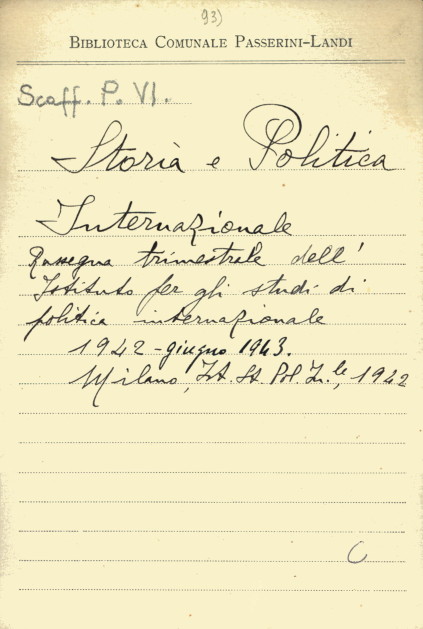 93)
BIBLIOTECA COMUNALE PASSERINI-LANDI
Scaff. P. VI.
Storia e Politica
Internazionale
Rassegna trimestrale dell'
Istituto per gli studi di
politica internazionale
1942 - giugno 1943.
Milano, Ist. St. Pol. In.le, 1942
C